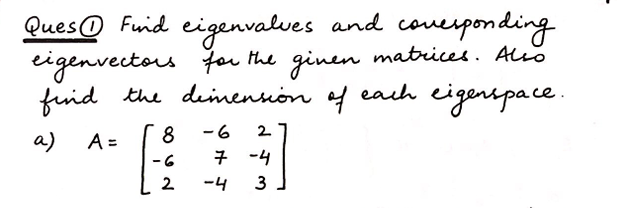 Ques① Find eigenvalues and corresponding
eigenvectors for the given matrices. Also
find the dimension of each eigenspace.
a) A = [ 8 -6 2
-6 7 -4
2 -4 3 ]